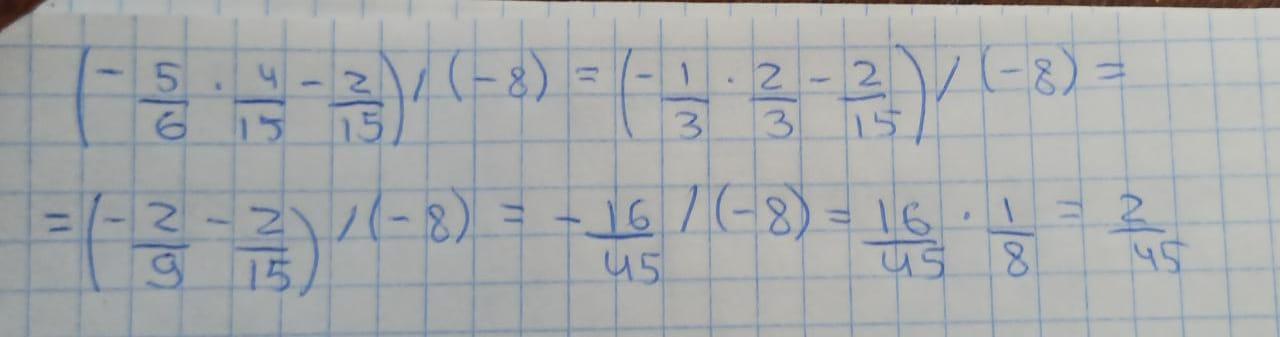 (- 5/6 · 4/15 - 2/15) / (-8) = (- 1/3 · 2/3 - 2/15) / (-8) =
= (- 2/9 - 2/15) / (-8) = - 16/45 / (-8) = 16/45 · 1/8 = 2/45